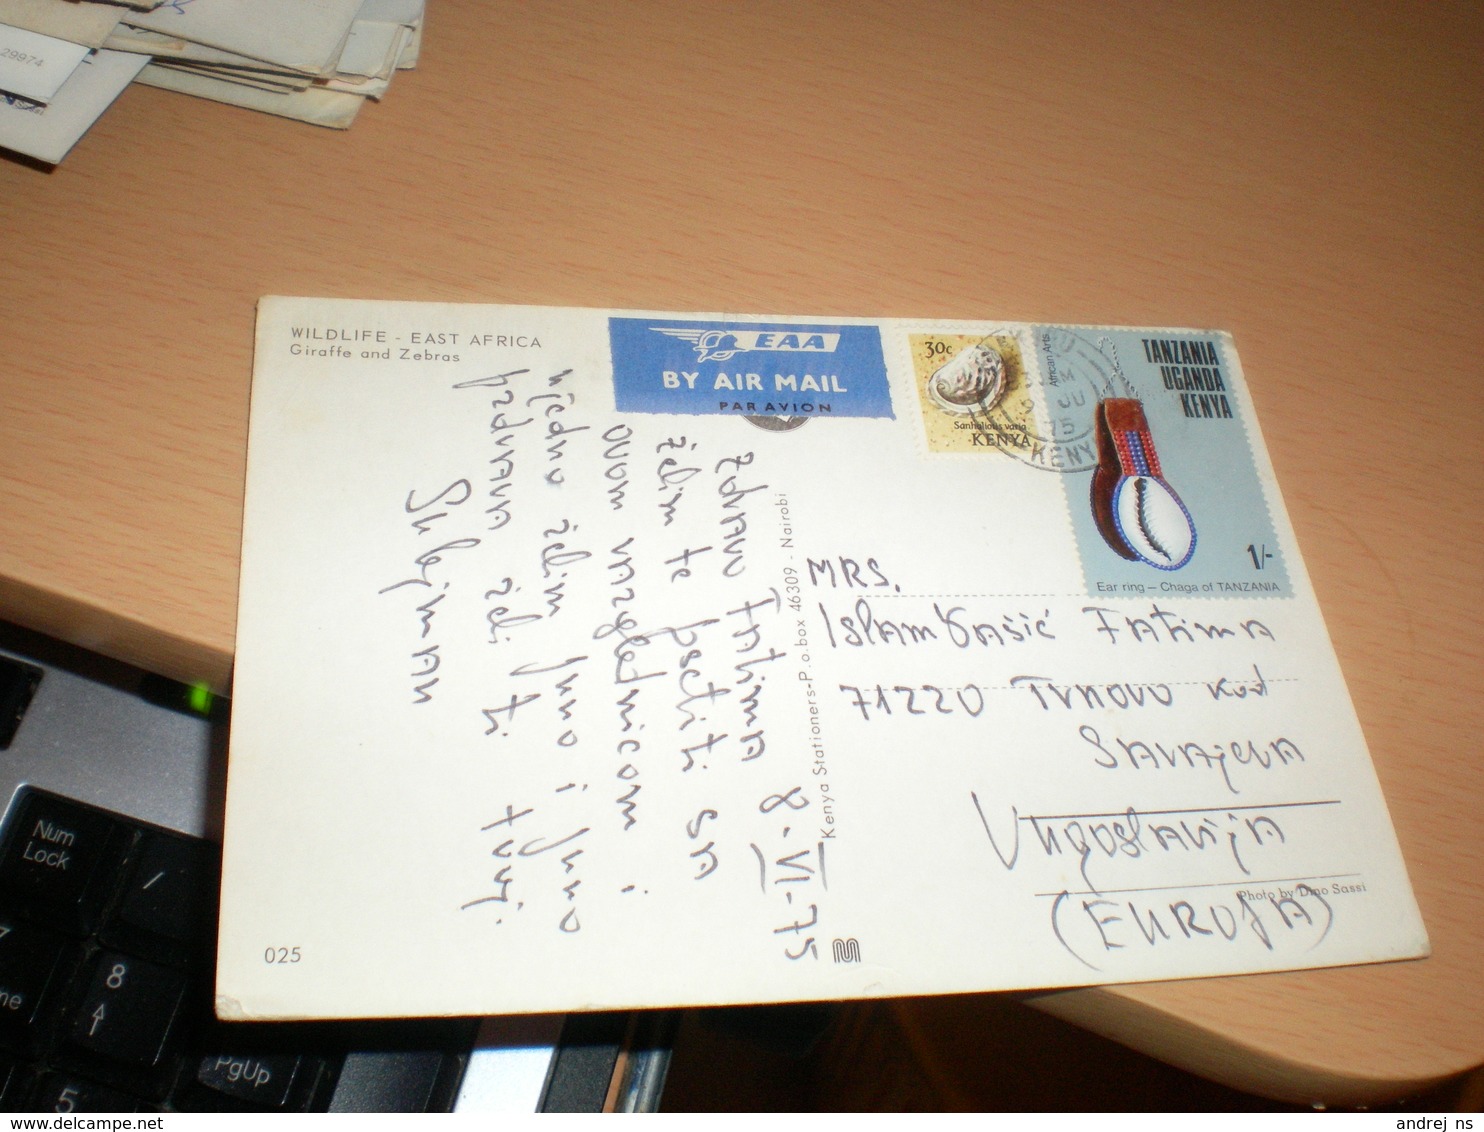 29974
WILDLIFE - EAST AFRICA
Giraffe and Zebras
EAA
BY AIR MAIL
PAR AVION
30c
Sanhaliotis varia
KENYA
African Arts
TANZANIA
UGANDA
KENYA
1/-
Ear ring – Chaga of TANZANIA
KENY
75
8-VI-75
Zdravo Fatima
želim te posetiti sa
ovom razglednicom i
ujedno želim puno i puno
pozdrava želi ti tvoj
Sulejman
Kenya Stationers-P.o.box 46309 - Nairobi
MRS.
Islambašić Fatima
71220 Trnovo kod
Sarajeva
Yugoslavija
(EUROPA)
Photo by Dino Sassi
025
M
Num
Lock
/
7
8
5
PgUp
andrej_ns